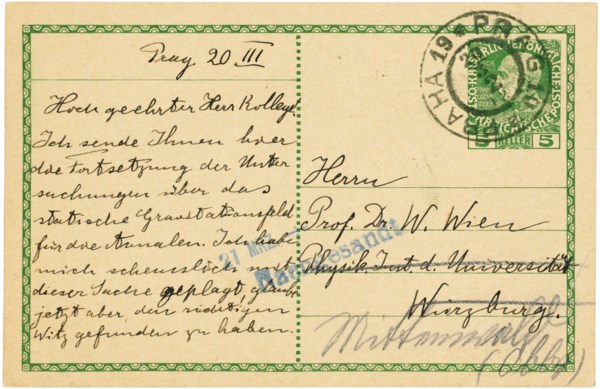 Prag. 20 III
Hochgeehrter Herr Kollege!
Ich sende Ihnen hier
die Fortsetzung der Unter
suchungen über das
statische Gravitationsfeld
für die Annalen. Ich habe
mich scheusslich mit
dieser Sache geplagt, glaube
jetzt aber den richtigen
Witz gefunden zu haben.
PRAG
PRAHA 19
5 HELLER 5
Herrn
Prof. Dr. W. Wien
Physik. Inst. d. Universität
Würzburg.
21 MRZ
Nachgesandt
Mittenwald